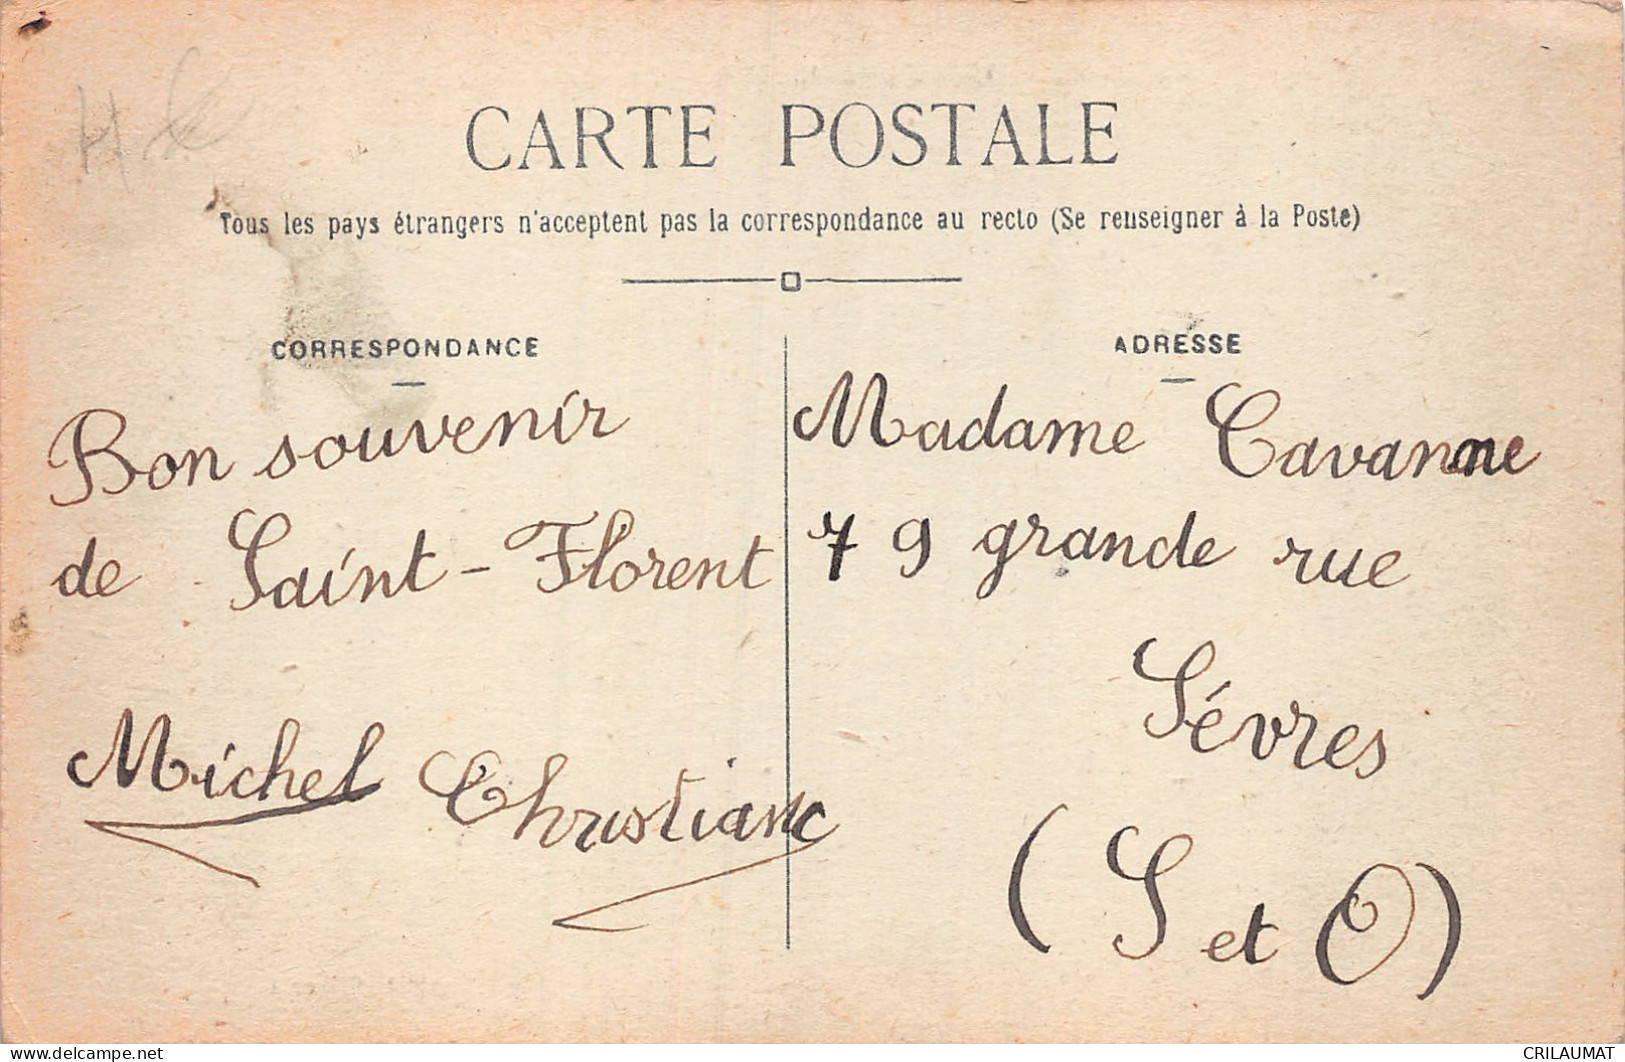 CARTE POSTALE
Tous les pays étrangers n'acceptent pas la correspondance au recto (Se renseigner à la Poste)
CORRESPONDANCE
Bon souvenir
de Saint-Florent
Michel Christiane
ADRESSE
Madame Cavanne
79 grande rue
Sèvres
(S et O)
delcampe.net
CRILAUMAT